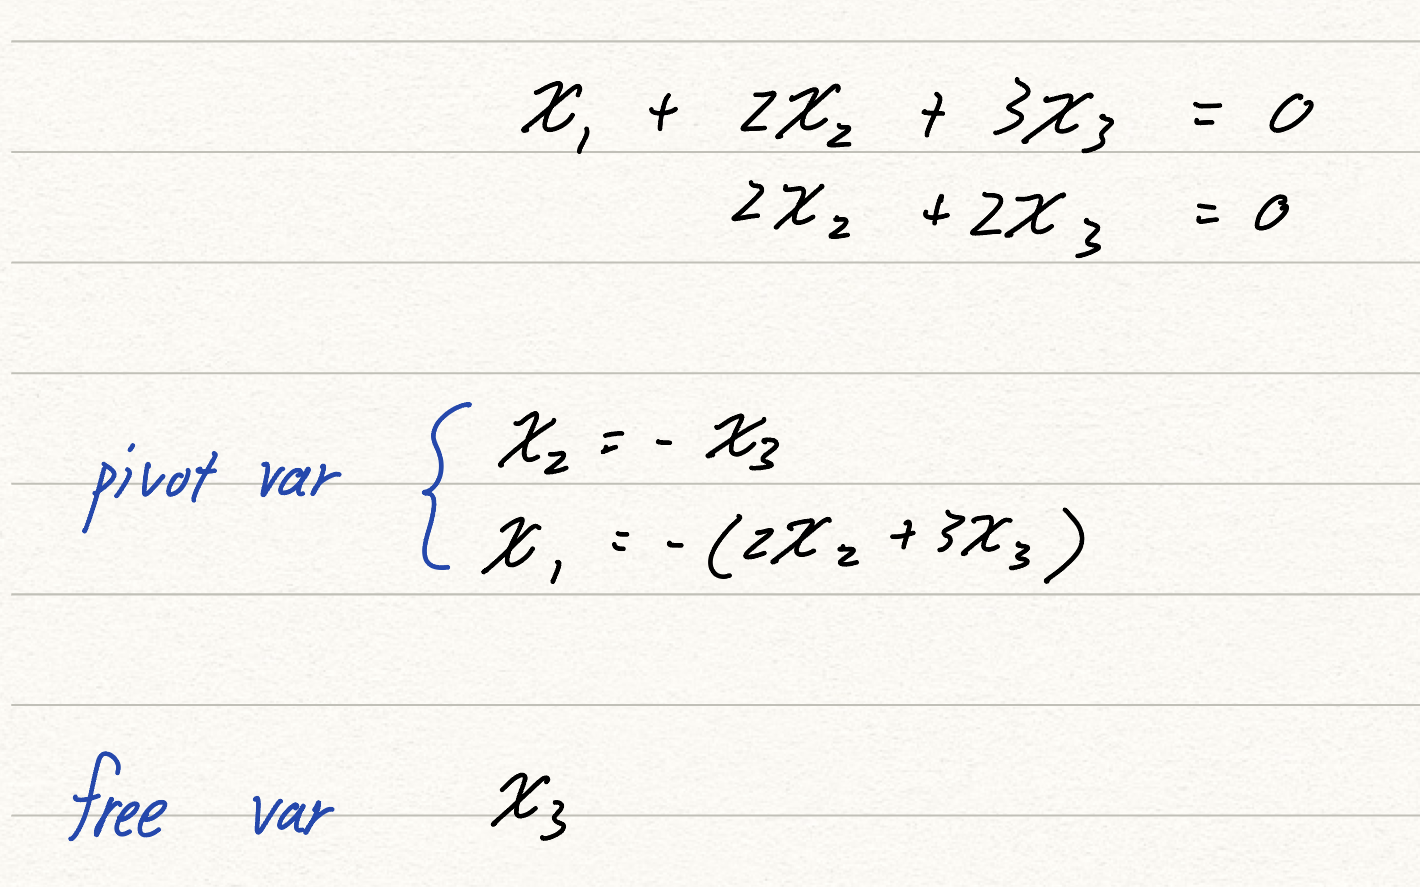 x₁ + 2x₂ + 3x₃ = 0
2x₂ + 2x₃ = 0
pivot var { x₂ = - x₃
x₁ = - (2x₂ + 3x₃)
free var x₃